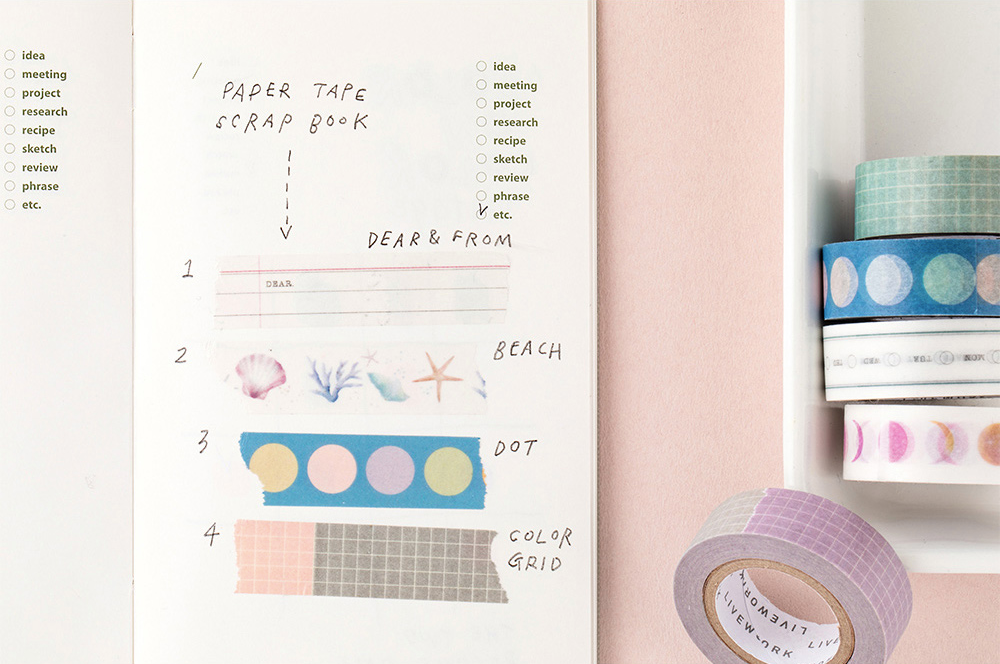 idea
meeting
project
research
recipe
sketch
review
phrase
etc.
PAPER TAPE
SCRAP BOOK
idea
meeting
project
research
recipe
sketch
review
phrase
etc.
DEAR & FROM
1
DEAR
2
BEACH
3
DOT
4
COLOR
GRID
TUE
MON
LIVEWORK
LIVEWORK
LIVE